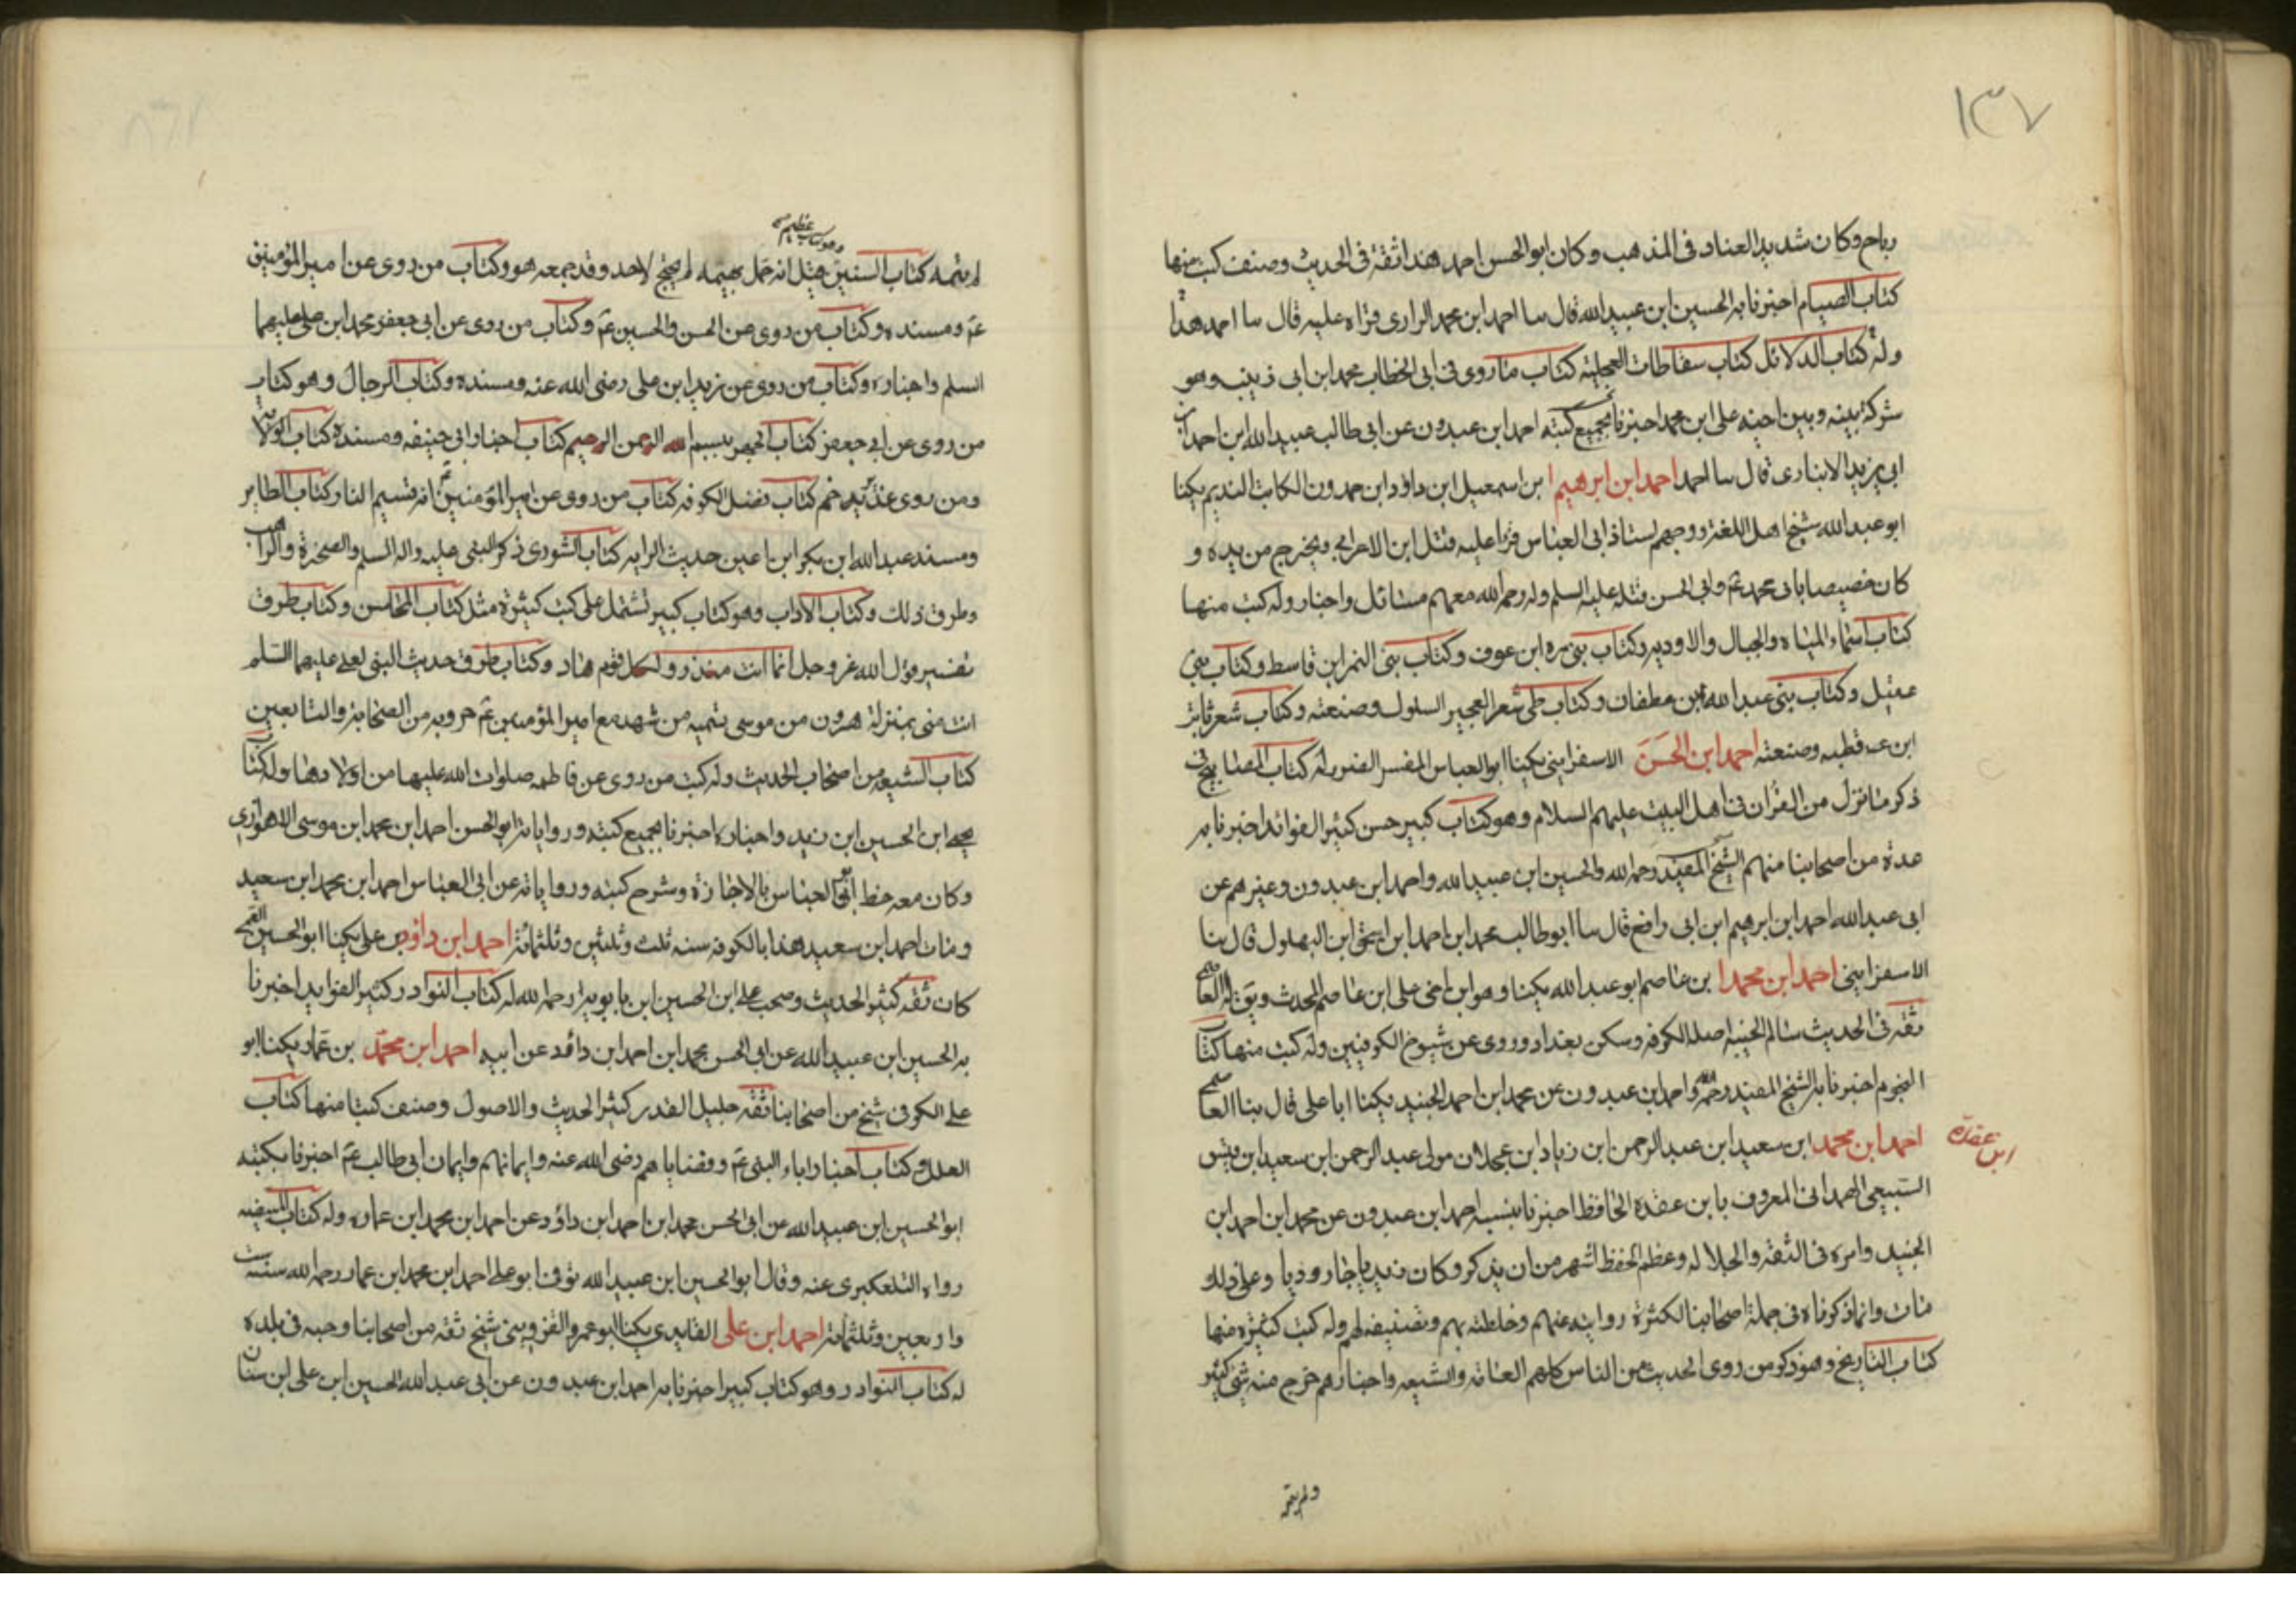 ١٣٧
رباح وكان شديد العناد فى المذهب وكان ابو الحسن احمد هذا ثقة فى الحديث وصنف كتب منها
كتاب الصيام اخبرنا به الحسين ابن عبيد الله قال سا احمد ابن محمد الرازى قراه عليه قال سا احمد هذا
وله كتاب الدلائل كتاب سقاطات العجلية كتاب ما روى فى ابى الخطاب محمد ابن ابى زينب وهو
شركة بينه وبين اخيه على ابن محمد اخبرنا بجميع كتبه احمد ابن عبدون عن ابى طالب عبيد الله ابن احمد ابن
ابى يزيد الانبارى قال سا احمد احمد ابن ابرهيم ابن اسمعيل ابن داود ابن حمدون الكاتب النديم يكنا
ابو عبد الله شيخ اهل اللغة ووجههم استاذ ابى العباس قرا عليه قبل ابن الاعرابى وتخرج من يده و
كان خصيصا بابى محمد عم وابى الحسن قبله عليه السلم وله رحمه الله معهم مسائل واخبار وله كتب منها
كتاب اسماء المياه والجبال والاودية وكتاب بنى مرة ابن عوف وكتاب بنى النمر ابن قاسط وكتاب بنى
عقيل وكتاب بنى عبد الله ابن عطفان وكتاب طى شعر العجير السلولى وصنعته وكتاب شعر ثابت
ابن قطبه وصنعته احمد ابن الحسن الاسفراينى يكنا ابو العباس المفسر الضرير له كتاب المصابيح فى
ذكر ما نزل من القران فى اهل البيت عليهم السلام وهو كتاب كبير حسن كثير الفوائد اخبرنا به
عدة من اصحابنا منهم الشيخ المفيد رحمه الله والحسين ابن عبيد الله واحمد ابن عبدون وغيرهم عن
ابى عبد الله احمد ابن ابرهيم ابن ابى رافع قال سا ابو طالب محمد ابن احمد ابن اسحق ابن البهلول قال سا
الاسفراينى احمد ابن محمد ابن عاصم ابو عبد الله يكنا وهو ابن اخى على ابن عاصم المحدث ويق له العاصمى
ثقة فى الحديث سالم الجنبة اصله الكوفه وسكن بغداد وروى عن شيوخ الكوفيين وله كتب منها كتاب
النجوم اخبرنا به الشيخ المفيد رحمه الله واحمد ابن عبدون عن محمد ابن احمد الجنيد يكنا ابا على قال سا العاصمى
ابن عقده
احمد ابن محمد ابن سعيد ابن عبد الرحمن ابن زياد ابن عجلان مولى عبد الرحمن ابن سعيد ابن قيس
السبيعى الهمدانى المعروف بابن عقدة الحافظ اخبرنا بنسبه احمد ابن عبدون عن محمد ابن احمد ابن
الجنيد وامره فى الثقة والجلالة وعظم الحفظ اشهر من ان يذكر وكان زيديا جاروديا وعلى ذلك
مات وانما ذكرناه فى جملة اصحابنا لكثرة روايته عنهم وخلطته بهم وتصنيفه لهم وله كتب كثيرة منها
كتاب التاريخ وهو ذكر من روى الحديث من الناس كلهم العامة والشيعه واخبارهم خرج منه شى كثير
ولم يتمه
وهو كتاب عظيم
لم يتمه كتاب السنن قيل انه حمل بهيمه لم يجتمع لاحد وقد جمعه هو وكتاب من روى عن امير المؤمنين
عم ومسنده وكتاب من روى عن الحسن والحسين عم وكتاب من روى عن ابى جعفر محمد ابن على عليهما
السلم واخباره وكتاب من روى عن زيد ابن على رضى الله عنه ومسنده وكتاب الرجال وهو كتاب
من روى عن ابى جعفر كتاب الجهر ببسم الله الرحمن الرحيم كتاب اخبار ابى حنيفه ومسنده كتاب الولاية
ومن روى غدير خم كتاب فضل الكوفه كتاب من روى عن امير المؤمنين عم انه قسيم النار كتاب الطاير
ومسند عبد الله ابن بكير ابن اعين حديث الرايه كتاب الشورى ذكر النبى عليه واله السلم والصخرة والراهب
وطرق ذلك وكتاب الاداب وهو كتاب كبير تشتمل على كتب كثيرة مثل كتاب المحاسن وكتاب طرق
تفسير قول الله عز وجل انما انت منذر ولكل قوم هاد وكتاب طرق حديث النبى لعلى عليهما السلم
انت منى بمنزلة هرون من موسى تسميه من شهد مع امير المؤمنين عم حروبه من الصحابة والتابعين
كتاب الشيعه من اصحاب الحديث وله كتب من روى عن فاطمه صلوات الله عليها من اولادها وله كتاب
يحيى ابن الحسين ابن زيد واخباره اخبرنا بجميع كتبه ورواياته ابو الحسن احمد ابن محمد ابن موسى الاهوازى
وكان معه خط ابى العباس بالاجازة وشرح كتبه ورواياته عن ابى العباس احمد ابن محمد ابن سعيد
ومات احمد ابن سعيد هذا بالكوفه سنه ثلث وثلثين وثلثمائة احمد ابن داود بن على يكنا ابو الحسين القمى
كان ثقه كثير الحديث وصحب على ابن الحسين ابن بابويه رحمه الله له كتاب النوادر كثير الفوايد اخبرنا
به الحسين ابن عبيد الله عن ابى الحسن محمد ابن احمد ابن داود عن ابيه احمد ابن محمد بن عمار يكنا ابو
على الكوفى شيخ من اصحابنا ثقه جليل القدر كثير الحديث والاصول وصنف كتبا منها كتاب
العلل وكتاب اخبار اباء النبى عم وفضاياهم رضى الله عنه وايمانهم وايمان ابى طالب عم اخبرنا بكتبه
ابو الحسين ابن عبيد الله عن ابى الحسن محمد ابن احمد ابن داود عن احمد ابن محمد ابن عماره وله كتاب المبيضه
رواه التلعكبرى عنه وقال ابو الحسين ابن عبيد الله توفى ابو على احمد ابن محمد ابن عمار رحمه الله سنه ست
واربعين وثلثمائة احمد ابن على الفايدى يكنا ابو عمرو القزوينى شيخ ثقه من اصحابنا وجيه فى بلده
له كتاب النوادر وهو كتاب كبير اخبرنا به احمد ابن عبدون عن ابى عبد الله الحسين ابن على ابن سنان